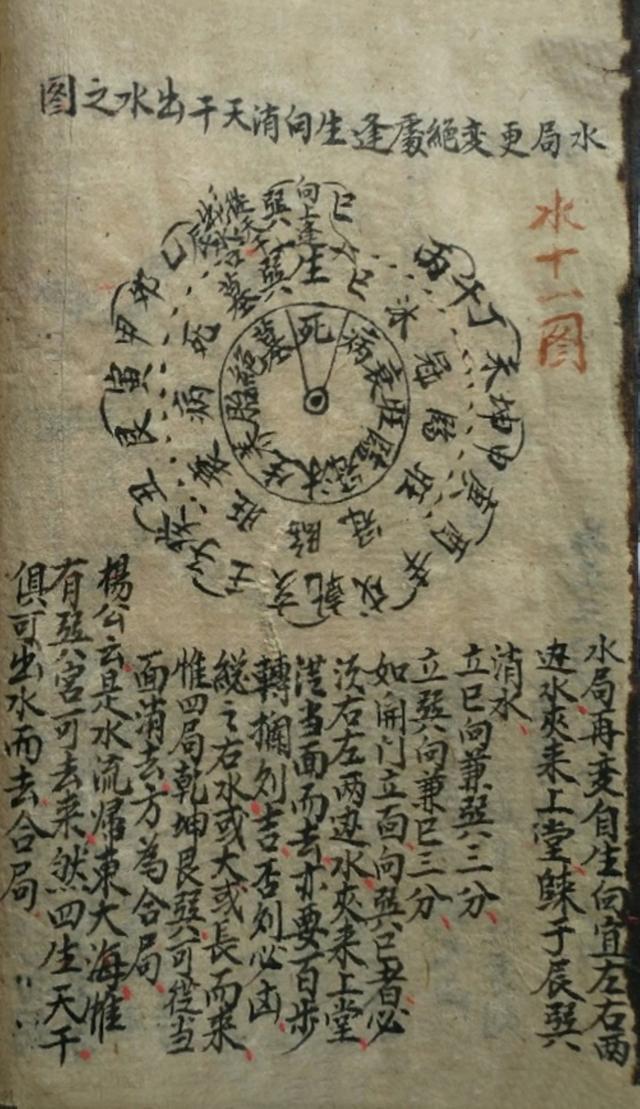 水局更変絕處逢生向消天干出水之图
水十一图
向逢生
巽巽
巳巳
丙午丁
未坤申
庚酉辛
戌乾亥
壬子癸
丑艮寅
甲卯乙
沐冠臨旺衰病死墓
死病衰旺臨冠沐生养胎絕墓
水局再变自生向宜左右兩
边水夾来上堂歸于辰巽
消水
立巳向兼巽三分
立巽向兼巳三分
如開门立面向巽巳者必
须右左两边水夾来上堂
从当面而去亦要百步
轉攔则吉否则必凶
総之右水或大或長而来
惟四局乾坤艮巽可從当
面消去方為合局
楊公云是水流歸東大海惟
有巽宮可去来然四生天干
俱可出水而去合局